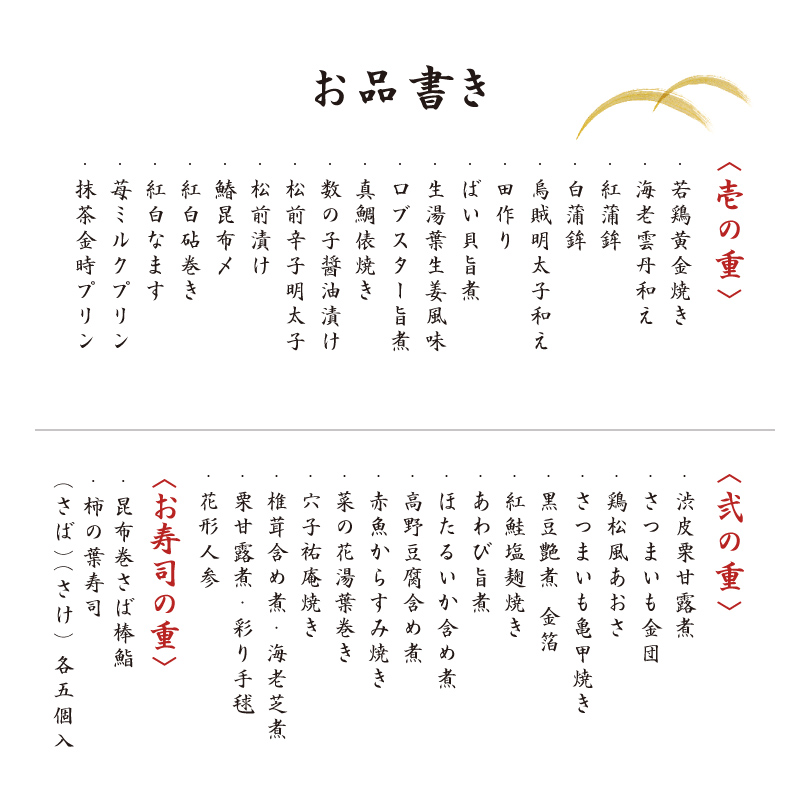 お品書き
〈壱の重〉
・若鶏黄金焼き
・海老雲丹和え
・紅蒲鉾
・白蒲鉾
・烏賊明太子和え
・田作り
・ばい貝旨煮
・生湯葉生姜風味
・ロブスター旨煮
・真鯛俵焼き
・数の子醤油漬け
・松前辛子明太子
・松前漬け
・鰆昆布〆
・紅白砧巻き
・紅白なます
・苺ミルクプリン
・抹茶金時プリン
〈弐の重〉
・渋皮栗甘露煮
・さつまいも金団
・鶏松風あおさ
・さつまいも亀甲焼き
・黒豆艶煮 金箔
・紅鮭塩麹焼き
・あわび旨煮
・ほたるいか含め煮
・高野豆腐含め煮
・赤魚からすみ焼き
・菜の花湯葉巻き
・穴子祐庵焼き
・椎茸含め煮・海老芝煮
・栗甘露煮・彩り手毬
・花形人参
〈お寿司の重〉
・昆布巻さば棒鮨
・柿の葉寿司
（さば）（さけ）各五個入